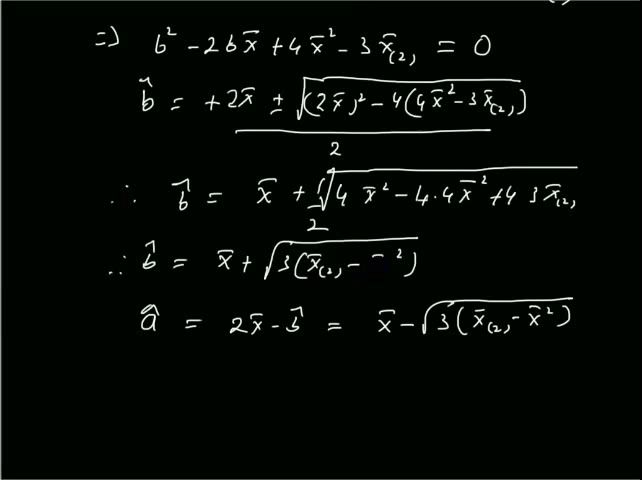 ⇒ b² - 2b x̄ + 4x̄² - 3x̄₍₂₎ = 0
b̂ = +2x̄ ± √((2x̄)² - 4(4x̄² - 3x̄₍₂₎)) / 2
∴ b̂ = x̄ + 1/2 √(4 x̄² - 4·4x̄² + 4 3x̄₍₂₎
∴ b̂ = x̄ + √(3(x̄₍₂₎ - ‾²))
â = 2x̄ - b̂ = x̄ - √(3(x̄₍₂₎ - x̄²))